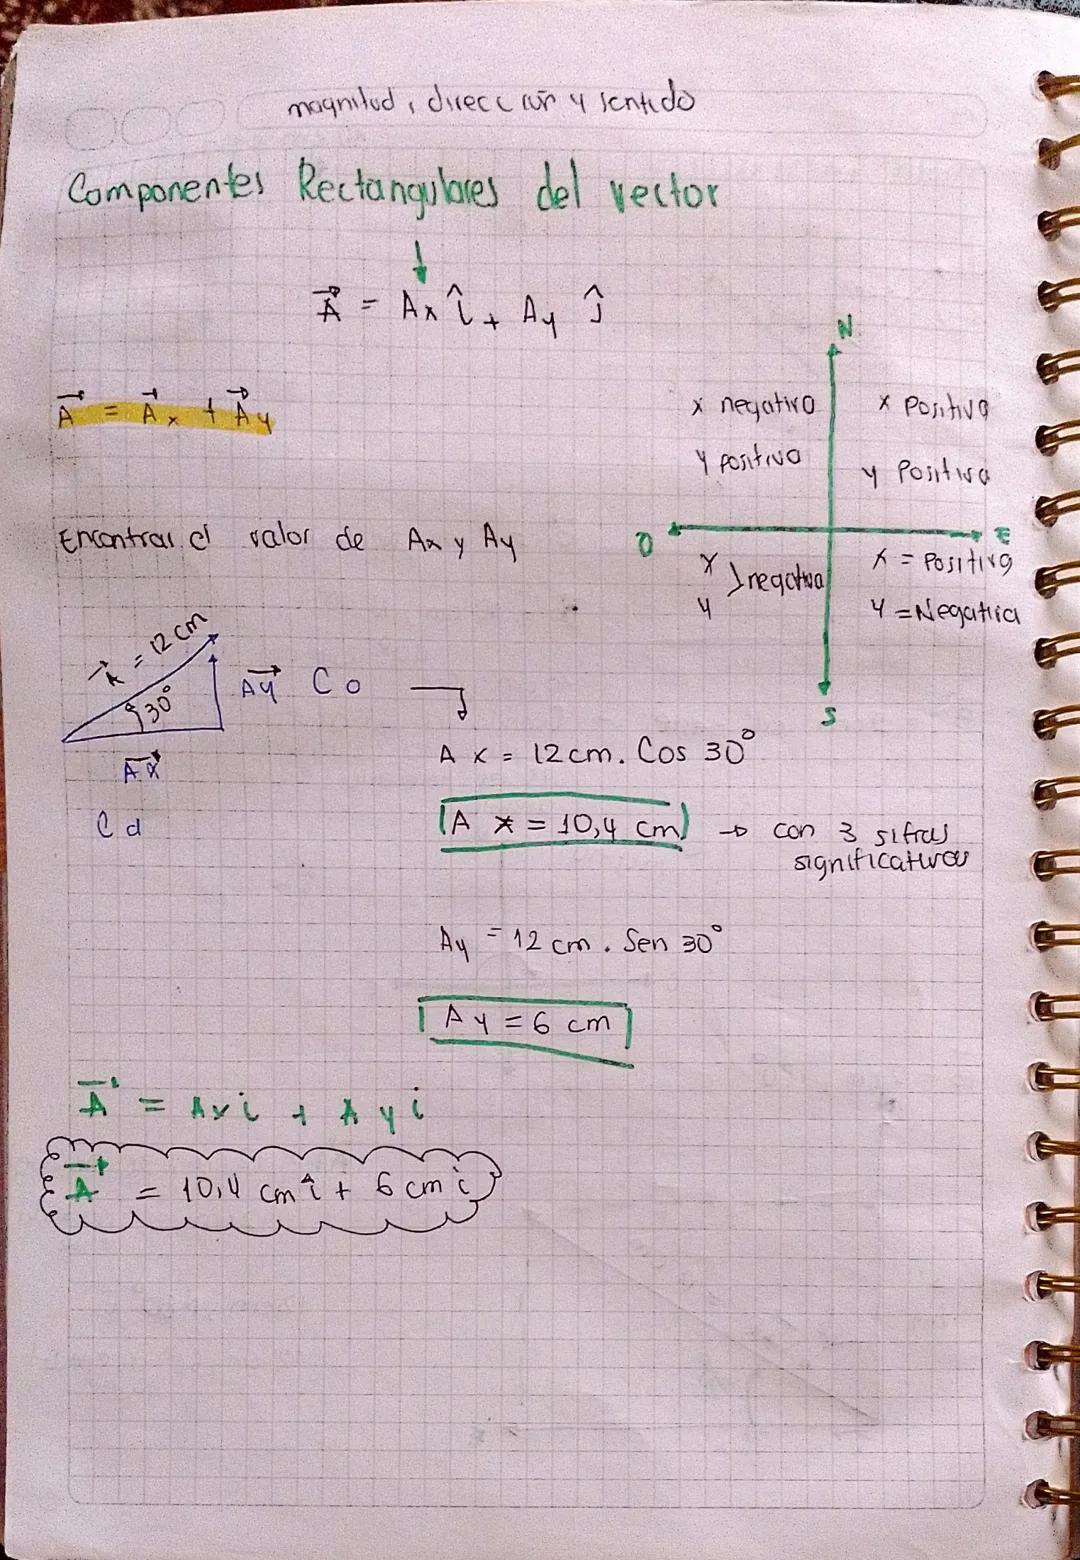 magnitud, dirección y sentido
Componentes Rectangulares del vector
A⃗ = Ax î + Ay ĵ
N
A⃗ = A⃗x + A⃗y
x negativo
y positivo
x Positivo
y Positiva
Encontrar el valor de Ax y Ay
O
E
x
y } negativa
x = Positiva
y = Negativa
S
A⃗ = 12 cm
30°
A⃗y Co
A⃗x
Cd
Ax = 12 cm . Cos 30°
Ax = 10,4 cm → con 3 sifras
significativas
Ay = 12 cm . Sen 30°
Ay = 6 cm
A⃗ = Axi + Ayi
A⃗ = 10,4 cm î + 6 cm i